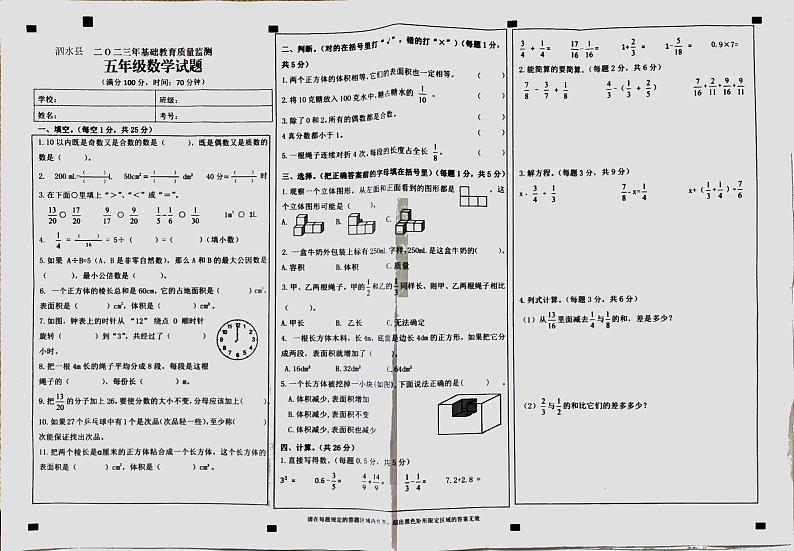 泗水县 二〇二三年基础教育质量监测
五年级数学试题
(满分100分，时间：70分钟)
学校： 班级：
姓名： 考号：
一、填空。(每空1分，共25分)
1.10以内既是奇数又是合数的数是（ ），既是偶数又是质数的
数是（ ）。
2. 200 mL=( )/( )L 50cm²=( )/( ) dm² 40分=( )/( )时
3.在下面○里填上“＞”、“＜”或“＝”。
13/20 ○ 17/20 9/17 ○ 9/20 1/5-1/6 ○ 1/30 1m³ ○ 1L
4. 1/4 = ( )/16 = 5÷( )=( )(填小数)
5.如果 A÷B=5（A、B是非零自然数），那么A和B的最大公因数是
（ ），最小公倍数是（ ）。
6. 一个正方体的棱长总和是60cm，它的占地面积是（ ）cm²，
表面积是（ ）cm²，体积是（ ）cm³。
7.如图，钟表上的时针从 “12” 绕点 O 顺时针
旋转（ ）到“3”，共经过了（ ）
小时。
8.把一根4m长的绳子平均分成8段，每段是这根
绳子的（ ），每份长（ ）m。
9.把13/20的分子加上26，要使分数的大小不变，分母应该加上（ ）。
10.如果27个乒乓球中有1个是次品(次品轻一些)，至少称（ ）
次能保证找出次品。
11.把两个棱长是a厘米的正方体粘合成一个长方体，这个长方体的
表面积是（ ）cm²，体积是（ ）cm³。
二、判断。(对的在括号里打“√”，错的打“×”)(每题1分，
共5分)
1.两个正方体的体积相等，它们的表面积也一定相等。（ ）
2.将10克糖放入100克水中，糖占糖水的1/10。（ ）
3.除了0和2，所有的偶数都是合数。（ ）
4真分数都小于1。（ ）
5.一根绳子连续对折4次，每段的长度占全长1/8。（ ）
三、选择。(把正确答案前的字母填在括号里)(每题1分，共5分)
1.观察一个立体图形，从左面和正面看到的图形都是 ，这
个立体图形可能是（ ）。
A. B. C.
2. 一盒牛奶外包装上标有250mL字样，250mL是这盒牛奶的（ ）。
A.容积 B.体积 C.质量
3.甲、乙两根绳子，甲的1/2和乙的1/3同样长，则甲、乙两根绳子相比
（ ）。
A.甲长 B. 乙长 C.无法确定
4. 一根长方体木料，长4m，底面是边长4dm的正方形，如果把它分
成两段，表面积就增加了（ ）。
A.16dm² B.32dm² C.64dm²
5.一个长方体被挖掉一小块(如图)，下面说法正确的是（ ）。
A.体积减少，表面积增加
B.体积减少，表面积不变
C.体积减少，表面积也减少
四、计算。(共26分)
1.直接写得数。(每题0.5分，共5分)
3³ = 0.6-3/5= 4/9+14/9= 1/3-1/4= 7.2+2.8=
3/4+1/4= 17/16-1/16= 1+2/3= 1-5/18= 0.9×7=
2.能简算的要简算。(每题2分，共6分)
7/8-3/8+1/8 4/3-(1/3+2/5) 7/16+2/11+9/16+9/11
3.解方程。(每题3分，共9分)
x-3/4=1/3 7/8-x=1/4 x+(1/3+1/4)=7/6
4.列式计算。(每题3分，共6分)
(1)从13/16里面减去1/4与1/8的和，差是多少？
(2)2/3与1/2的和比它们的差多多少？
请在每题规定的答题区域内作答，超出黑色矩形限定区域的答案无效